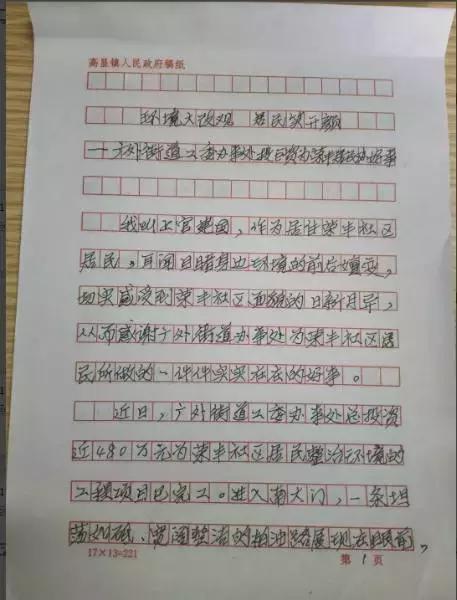 高显镇人民政府稿纸
环境大改观 居民笑开颜
一广外街道工委办事处投巨资为荣丰居民办好事
我叫上官建国,作为居住荣丰社区
居民,耳闻目睹身边环境的前后嬗变,
切实感受到荣丰社区面貌的日新月异,
从而感谢广外街道办事处为荣丰社区居
民所做的一件件实实在在的好事。
近日,广外街道工委办事处总投资
近480万元为荣丰社区居民整治环境的
工程项目已完工。进入南大门,一条坦
荡如砥、宽阔整洁的柏油路展现在眼前,
17×13=221
第1页